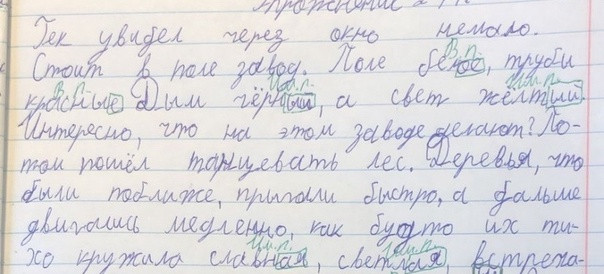 Упражнение 2
Тек увидел через окно немало.
Стоит в поле завод. Поле белое, трубы
В.п.
красные Дым чёрный, а свет жёлтый.
В.п. И.п. И.п.
Интересно, что на этом заводе делают? По-
том пошёл танцевать лес. Деревья, что
были поближе, прыгали быстро, а дальше
двигались медленно, как будто их ти-
хо кружила славная, светлая, встреха-
И.п. И.п.